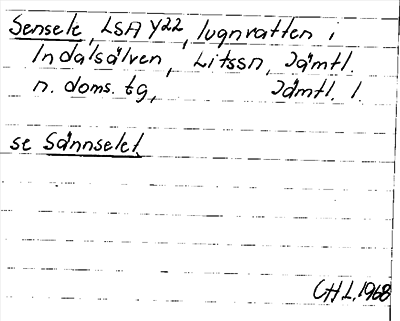 Sensele, LSA Y22, lugnvatten i
Indalsälven, Litssn, Jämtl.
n. doms. tg, Jämtl. l.
se Sännselet
CHL, 1968